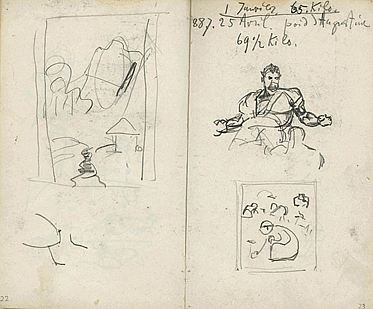 1 Janvier 65 Kilos
887. 25 Avril poid d'Augustine
69 1/2 Kilo.
22
23